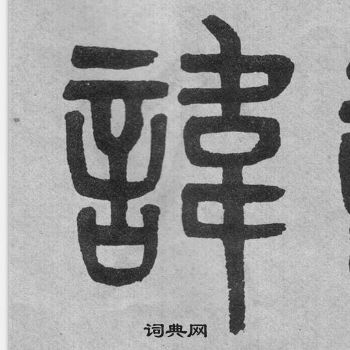 諱
词典网